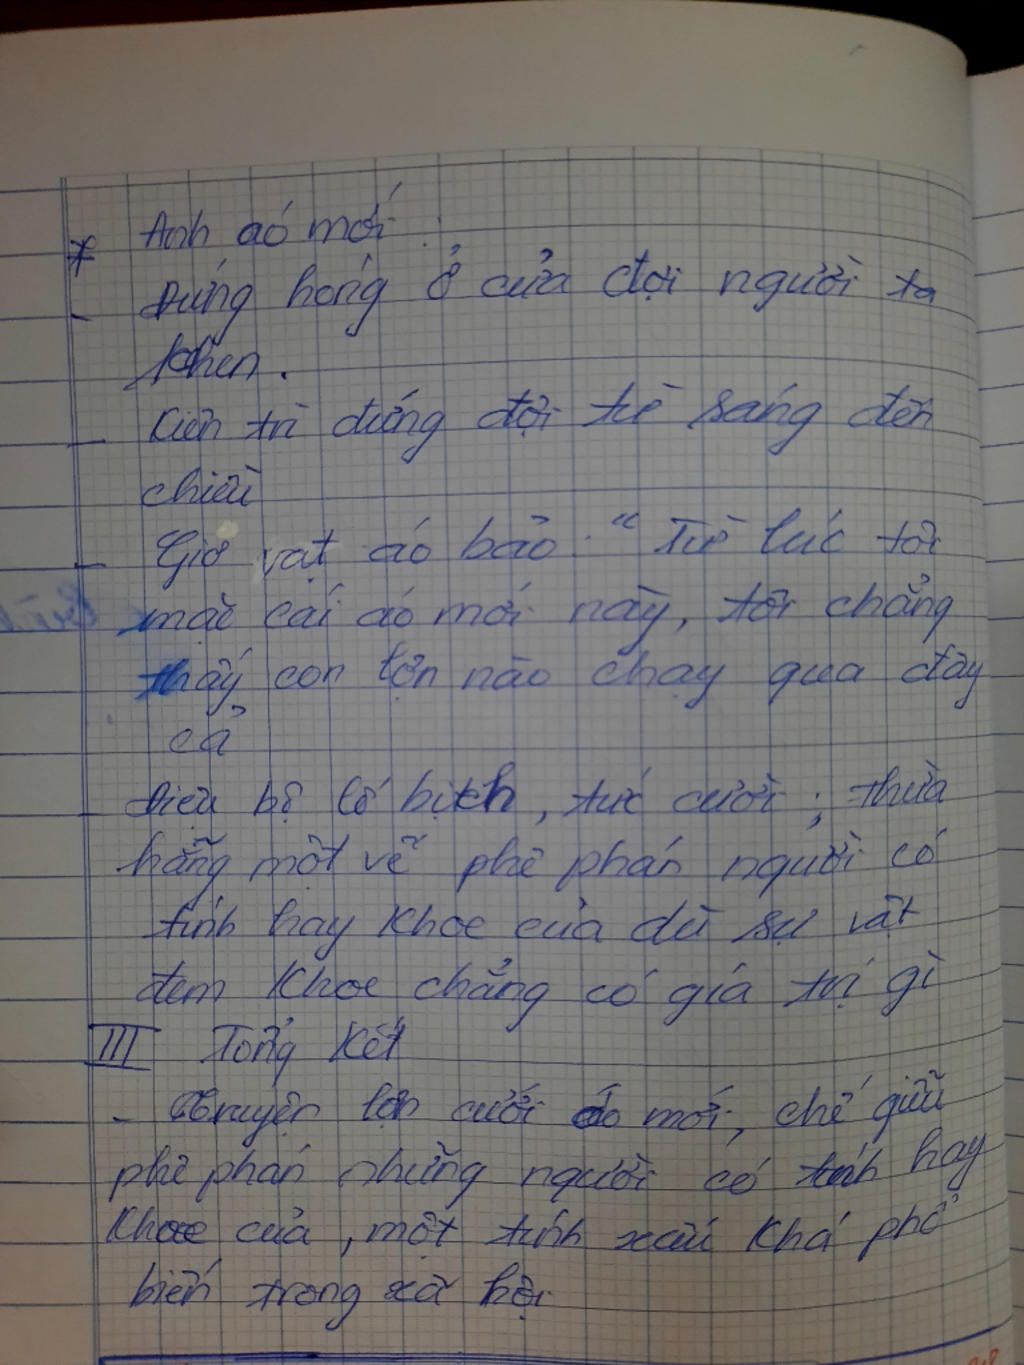 * Anh áo mới :
- Đứng hóng ở cửa đợi người ta
khen.
- Kiên trì đứng đợi từ sáng đến
chiều
- Giơ vạt áo bảo : " Từ lúc tôi
mặc cái áo mới này, tôi chẳng
thấy con lợn nào chạy qua đây
cả
- Điệu bộ lố bịch, tức cười ; thừa
hẳng một vế phê phán người có
tính hay khoe của dù sự vật
đem khoe chẳng có giá trị gì
III Tổng kết
- Truyện lợn cưới áo mới, chế giễu
phê phán những người có tính hay
khoe của, một tính xấu khá phổ
biến trong xã hội